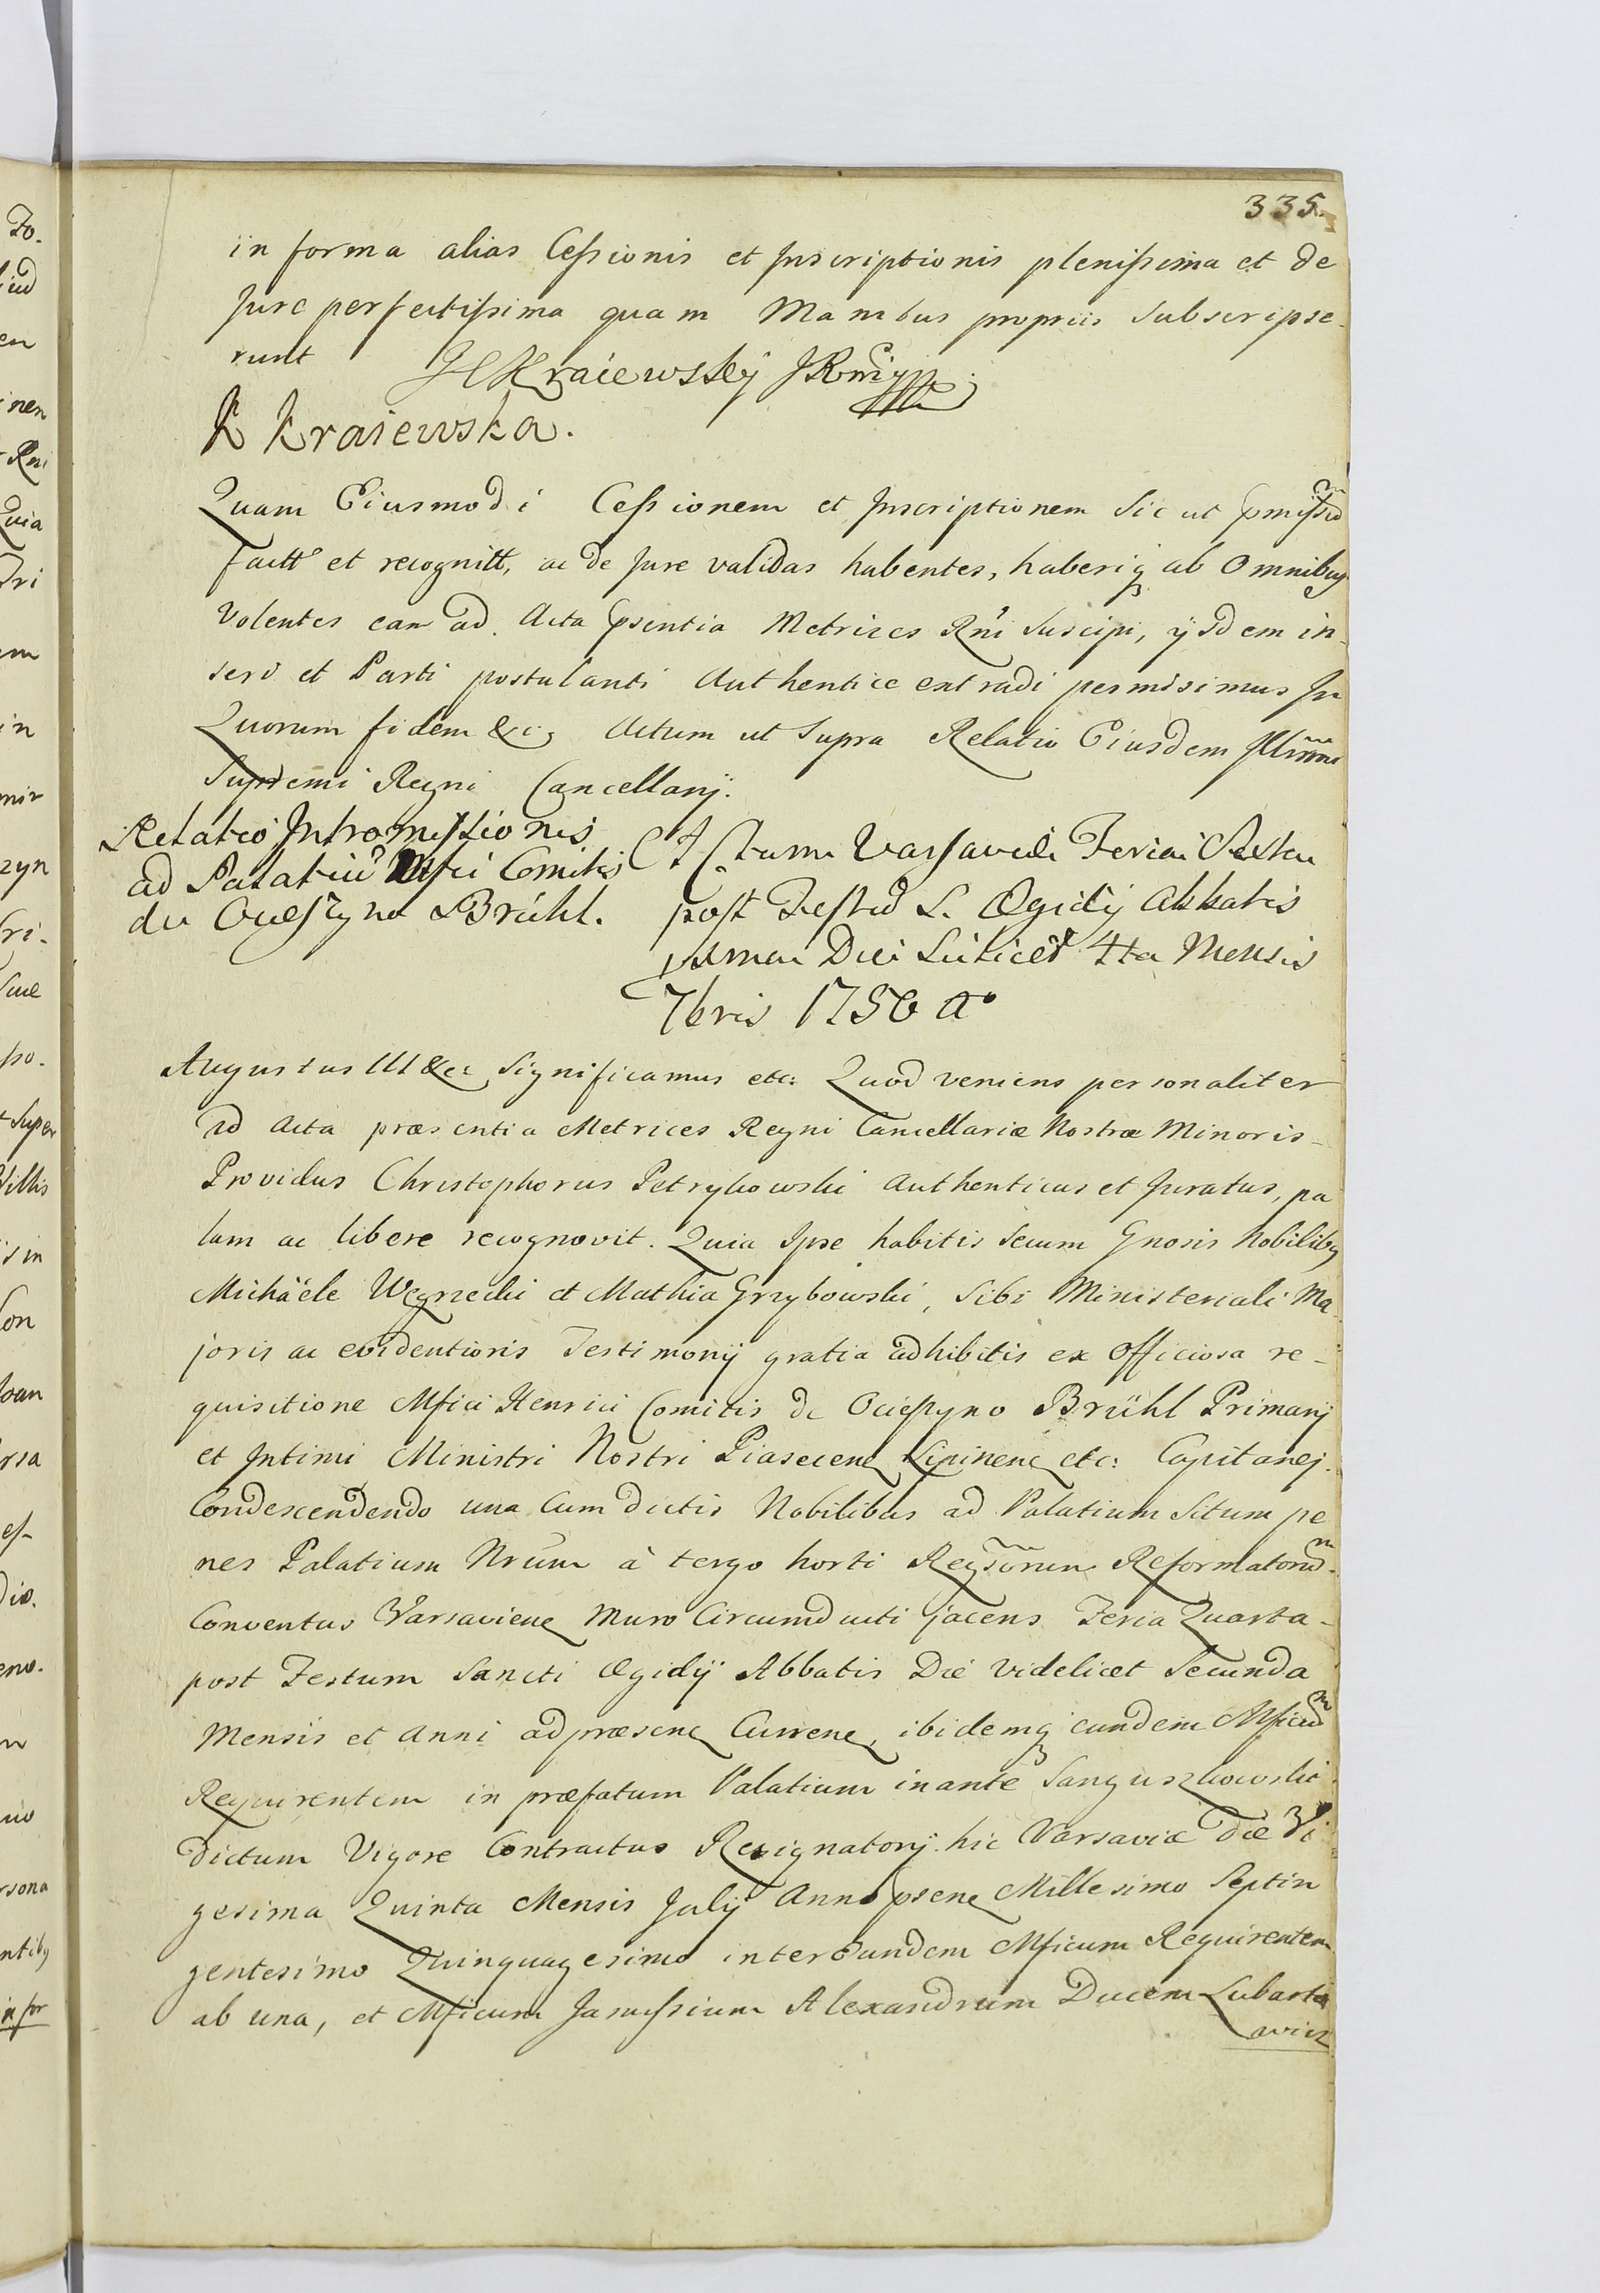 335.
in forma alias Cessionis et Inscriptionis plenissima et de
Jure perfectissima quam Manibus propriis subscripse
runt Kraiewskÿ
K Kraiewska.
Quam Eiusmodi Cessionem et Inscriptionem Sic ut pmissũ
factt et recognitt, ac de Jure validas habentes, haberiq ab Omnibus
Volentes eam ad Acta psentia Metrices Rni Suscipi, ÿsdem in-
seri et Parti postulanti Authentice extradi permisimus In
Quorum fidem &c; Actum ut Supra Relatio Eiusdem Illmi
Supremi Regni Cancellarÿ.
Relatio Intromissionis
ad Palatiũ Mfci Comitis
de Ocieszyno Brühl.
Actum Varsaviæ Feria Sexta
post Festũ S. Ægidÿ Abbatis
Die Scilicet 4ta Mensis
7bris 1750 Aº
Augustus III &c Significamus etc: Quod veniens personaliter
ad Acta præsentia Metrices Regni Cancellariæ Nostræ Minoris
Providus Christophorus Petrykowski Authenticus et Juratus, pa
lam ac libere recognovit. Quia Ipse habitis Secum Gnosis Nobilibq
Michäele Węgrzecki et Mathia Grzybowski, Sibi Ministeriali Ma-
joris ac evidentioris Testimonÿ gratia adhibitis ex Officiosa re-
quisitione Mfici Henrici Comitis de Ocieszyno Brühl Primarÿ
et Intimi Ministri Nostri Piasecens Lipinens etc: Capitanej.
Condescendendo una Cum dictis Nobilibus ad Palatium Situm pe
nes Palatium Nrum à tergo horti Reformatorũ
Conventus Varsaviens Muro Circumducti jacens Feria Quarta
post Festum Sancti Ægidÿ Abbatis Die videlicet Secunda
Mensis et Anni ad præsens Currens, ibidemq eundem Mficũ
Requirentem in præfatum Palatium inante Sanguszkowski
dictum Vigore Contractus Resignatorÿ hic Varsaviæ Die Vi
gesima Quinta Mensis Julÿ Anno psens Millesimo Septin
gentesimo Quinquagesimo inter Eundem Mficum Requirentem
ab una, et Mficum Janussium Alexandrum Ducem Lubarto
wicz